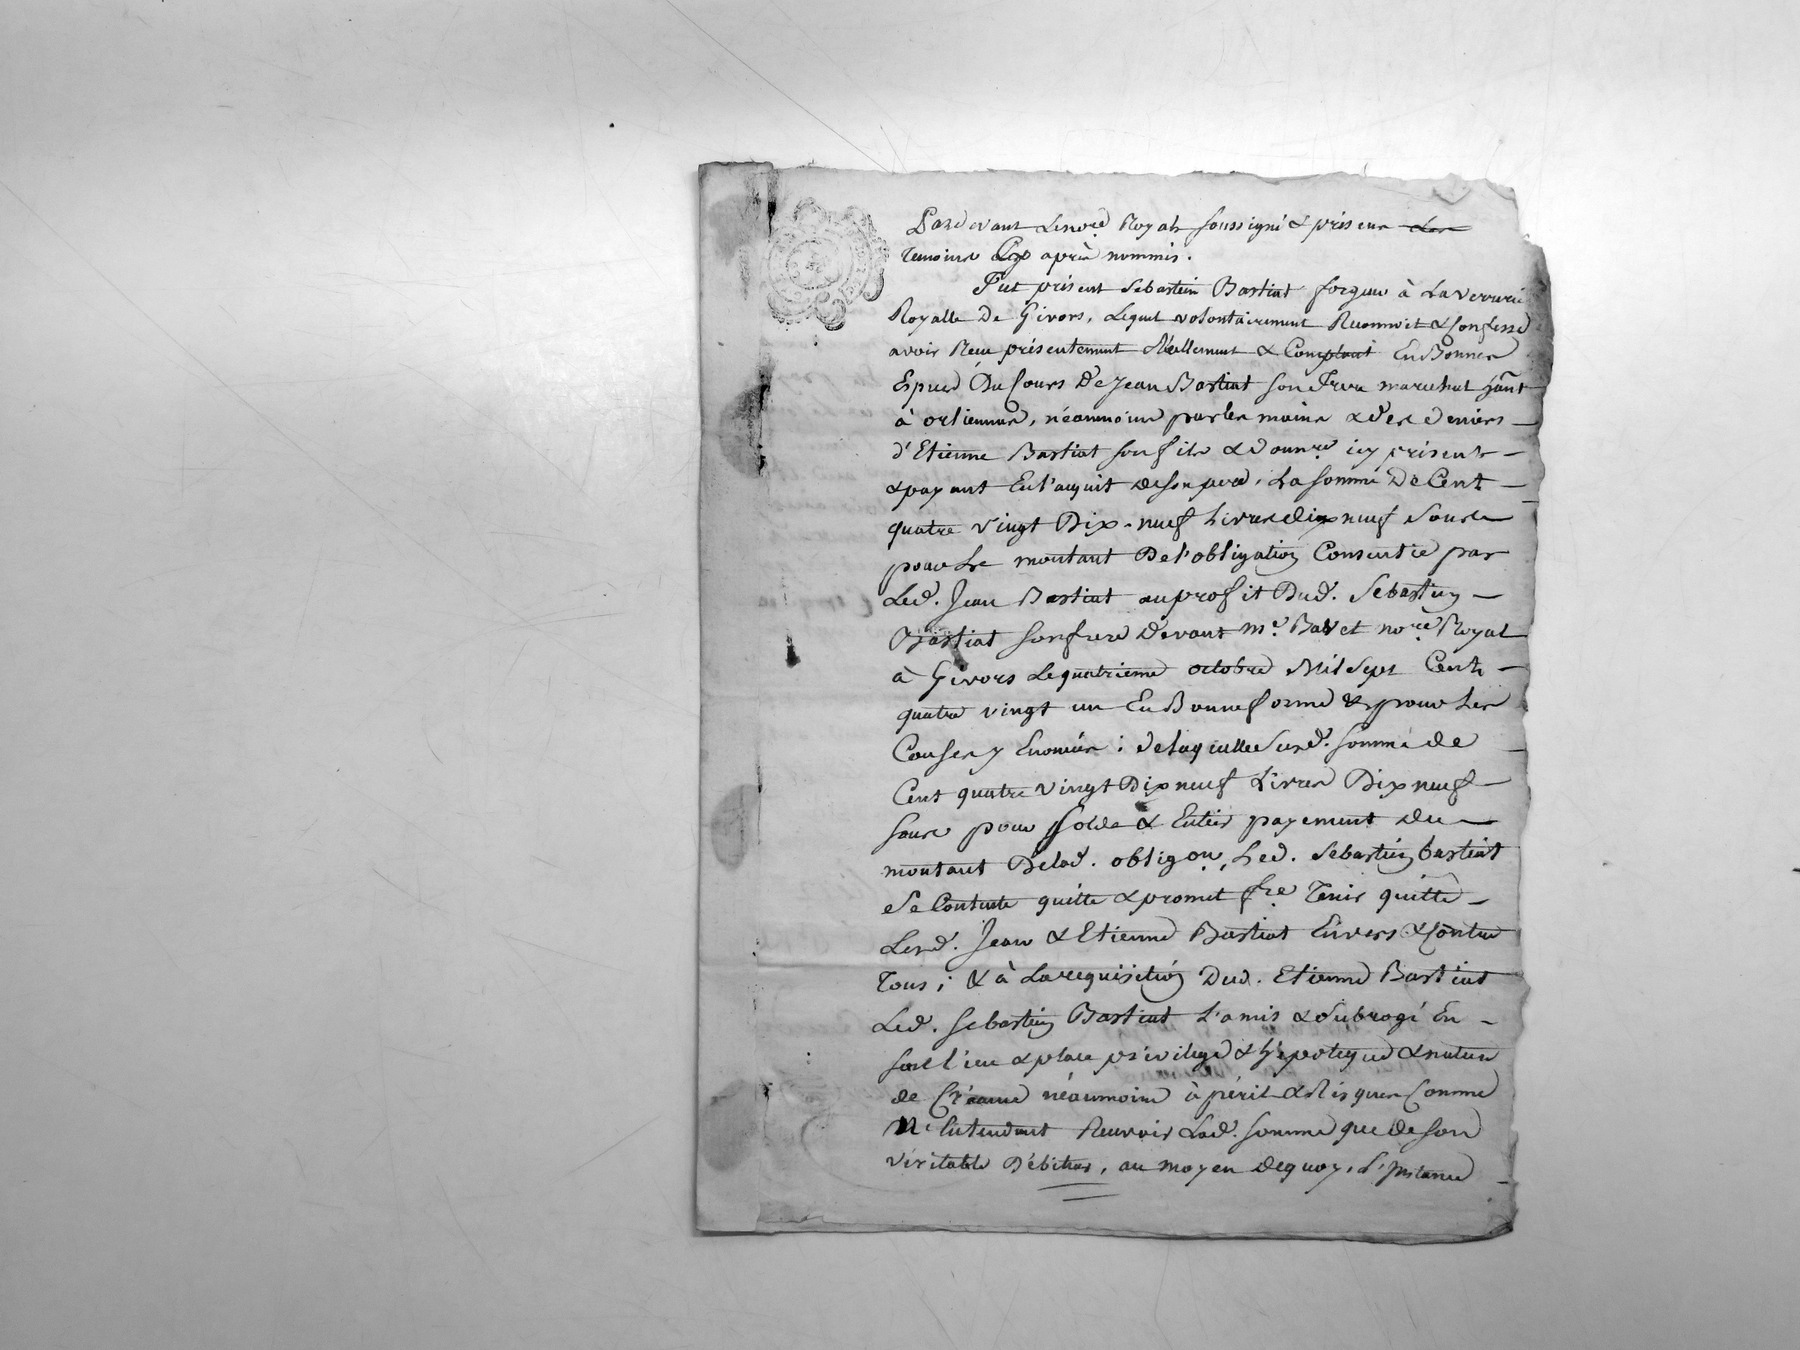 Pardevant Lenore Royal soussigné & présens Les
Temoins Cy après nommés.
Fut présent Sebastien Bastiat forgeur à La Verrerie
Royalle De Givors, Lequel volontairement Reconnoit & Confesse
avoir Reçu présentement Réellement & Comptant En Bonnes
Especes Du Cours De Jean Bastiat son frere marechal
à orliennas, néanmoins par les mains & des deniers
d'Etienne Bastiat son fils & donnre icy présent
& payant En l'acquit de son pere, La somme De Cent
quatre Vingt Dix-neuf Livres dix neuf Sous
pour Le montant De l'obligation Consentie par
Led. Jean Bastiat au profit Dud. Sebastien
Bastiat son frere Devant Me. Bavet nore Royal
à Givors Le quatrieme octobre Mil Sept Cent
quatre vingt un En Bonne forme & pour Les
Causes y Enoncées : de laquelle Susd. somme de
Cent quatre vingt Dix neuf Livres Dix neuf
sous pour solde & Entier payement du
montant De lad. obligon, Led. Sebastien bastiat
Se Contente quitte & promet fre Tenir quitte
Lesd. Jean & Etienne Bastiat Envers & Contre
Tous ; & à La requisition Dud. Etienne Bastiat
Led. Sebastien Bastiat L'a mis & Subrogé En
son lieu & place privilege & hypoteque & nature
de Créance néanmoins à péril & Risques Comme
N'Entendant Recevoir Lad. somme que de son
véritable Débiteur, au moyen dequoy, L'Instance